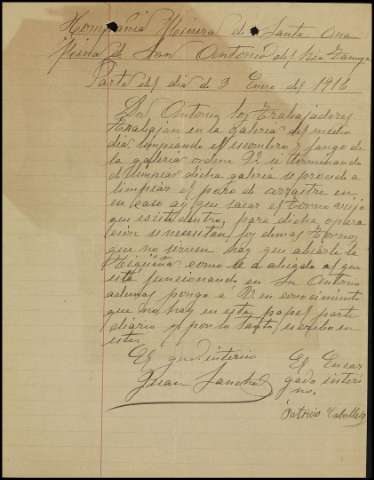 Compañia Minera de Santa Ana
Mina de San Antonio del Rio
Parte del dia de 3 Enero del 1916
Sn Antonio los trabajadores
trabajan en la galeria del medio
dia limpiando el escombro y fango de
la galeria orden V. si terminando
de limpiar dicha galeria se procede a
limpiar el pozo de arrastre en
en caso ay que sacar el torno viejo
que esta dentro, para dicha opera
cion se necesitan los demas tornos
que no sirven hay que abiarle la
como se a abiado al que
esta funcionando en Sn Antonio
ademas pongo a V. en conocimiento
que no hay en esta papel parte
diario y por lo tanto escribo en
este
El guarda interino
Juan Sanchez
El Encar
gado interi
no.
Antonio Caballero